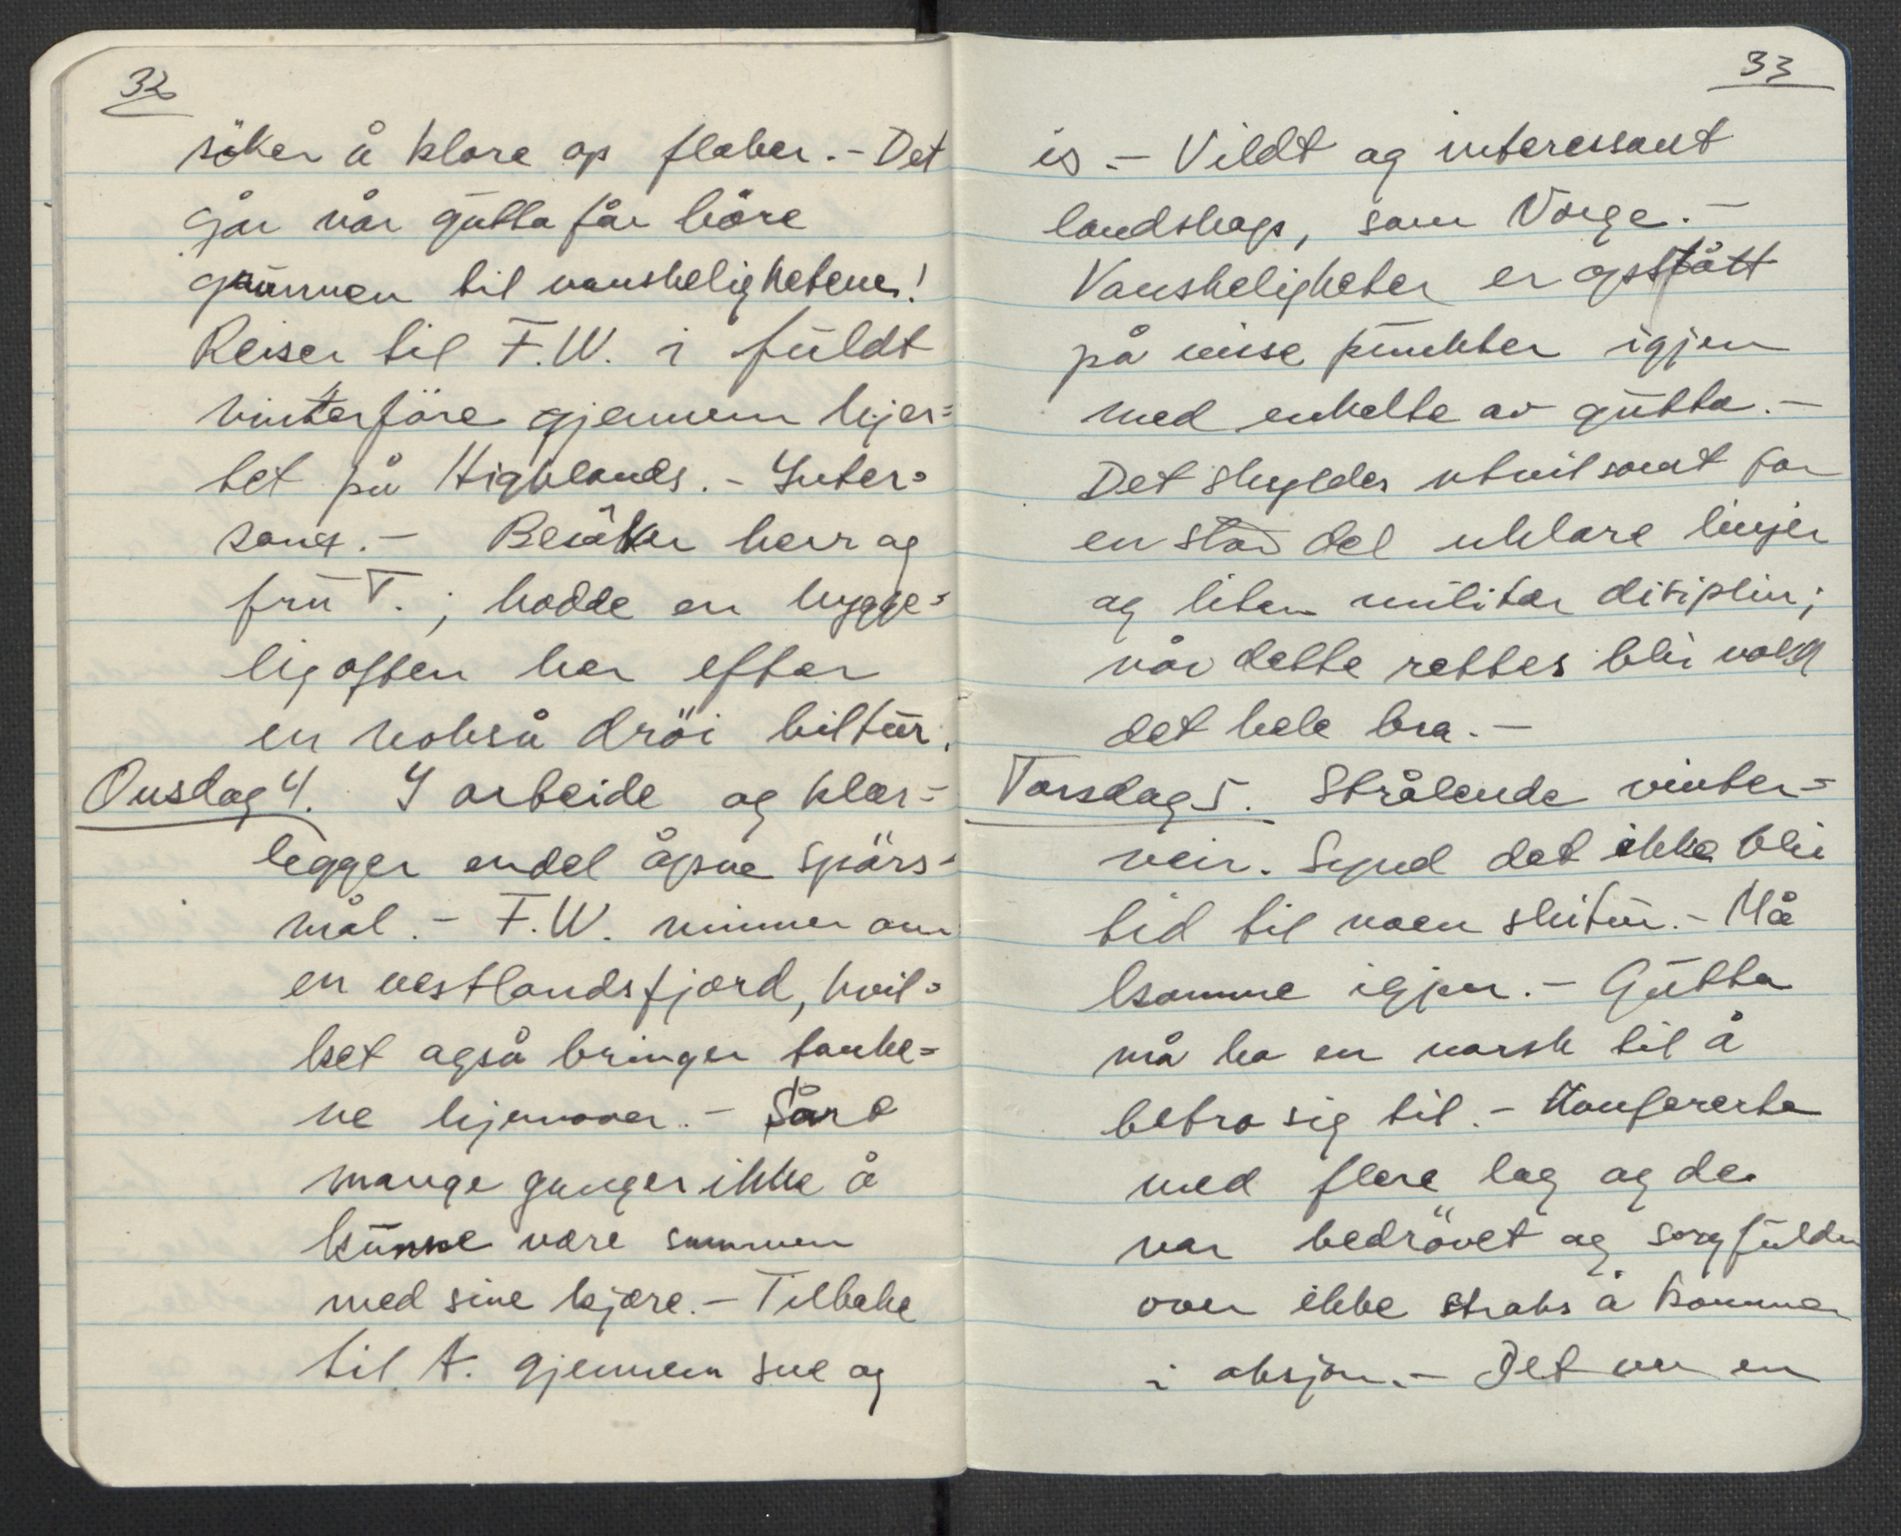 32
söker å klare op floker. - Det
går når gutta får höre
grunnen til vanskelighetene!
Reiser til F.W. i fuldt
vinterföre gjennem hjer=
tet på Highlands. - Inter=
sang. - Besöker herr og
fru T. ; hadde en hygge=
lig aften her efter
en nokså dröi biltur.
Onsdag 4. I arbeide og klar=
legger endel åpne spörs=
mål. - F.W. minner om
en vestlandsfjord, hvil=
ket også bringer tanke=
ne hjemover. - Sårt
mange ganger ikke å
kunne være sammen
med sine kjære. - Tilbake
til A. gjennem sne og
33
is. - Vildt og interessant
landskap, som Norge. -
Vanskeligheter er opstått
på visse punkter igjen
med enkelte av gutta. -
Det skyldes utvilsomt for
en stor del uklare linjer
og liten militær disiplin;
når dette rettes blir nok
det hele bra. -
Torsdag 5. Strålende vinter=
veir. Synd det ikke blir
tid til noen skitur. - Må
komme igjen. - Gutta
må ha en norsk til å
betro sig til. - Konfererte
med flere lag og de
var bedrövet og sorgfulde
over ikke straks å komme
i aksjon. - Det var en